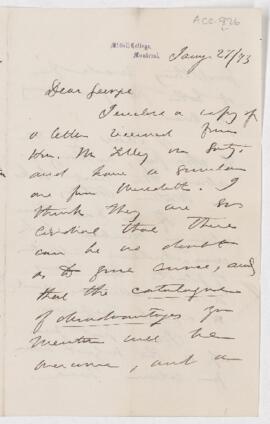 ACC-926
McGill College,
Montreal.
Jany 27/73
Dear George
I enclose a copy of
a letter received from
Hon. Mr Tilley on
and have a similar
one from Meredith. I
think they are so
cordial that there
can be no doubt
as to your , and
that the catalogue
of disadvantages you
mention will be
overcome, and a